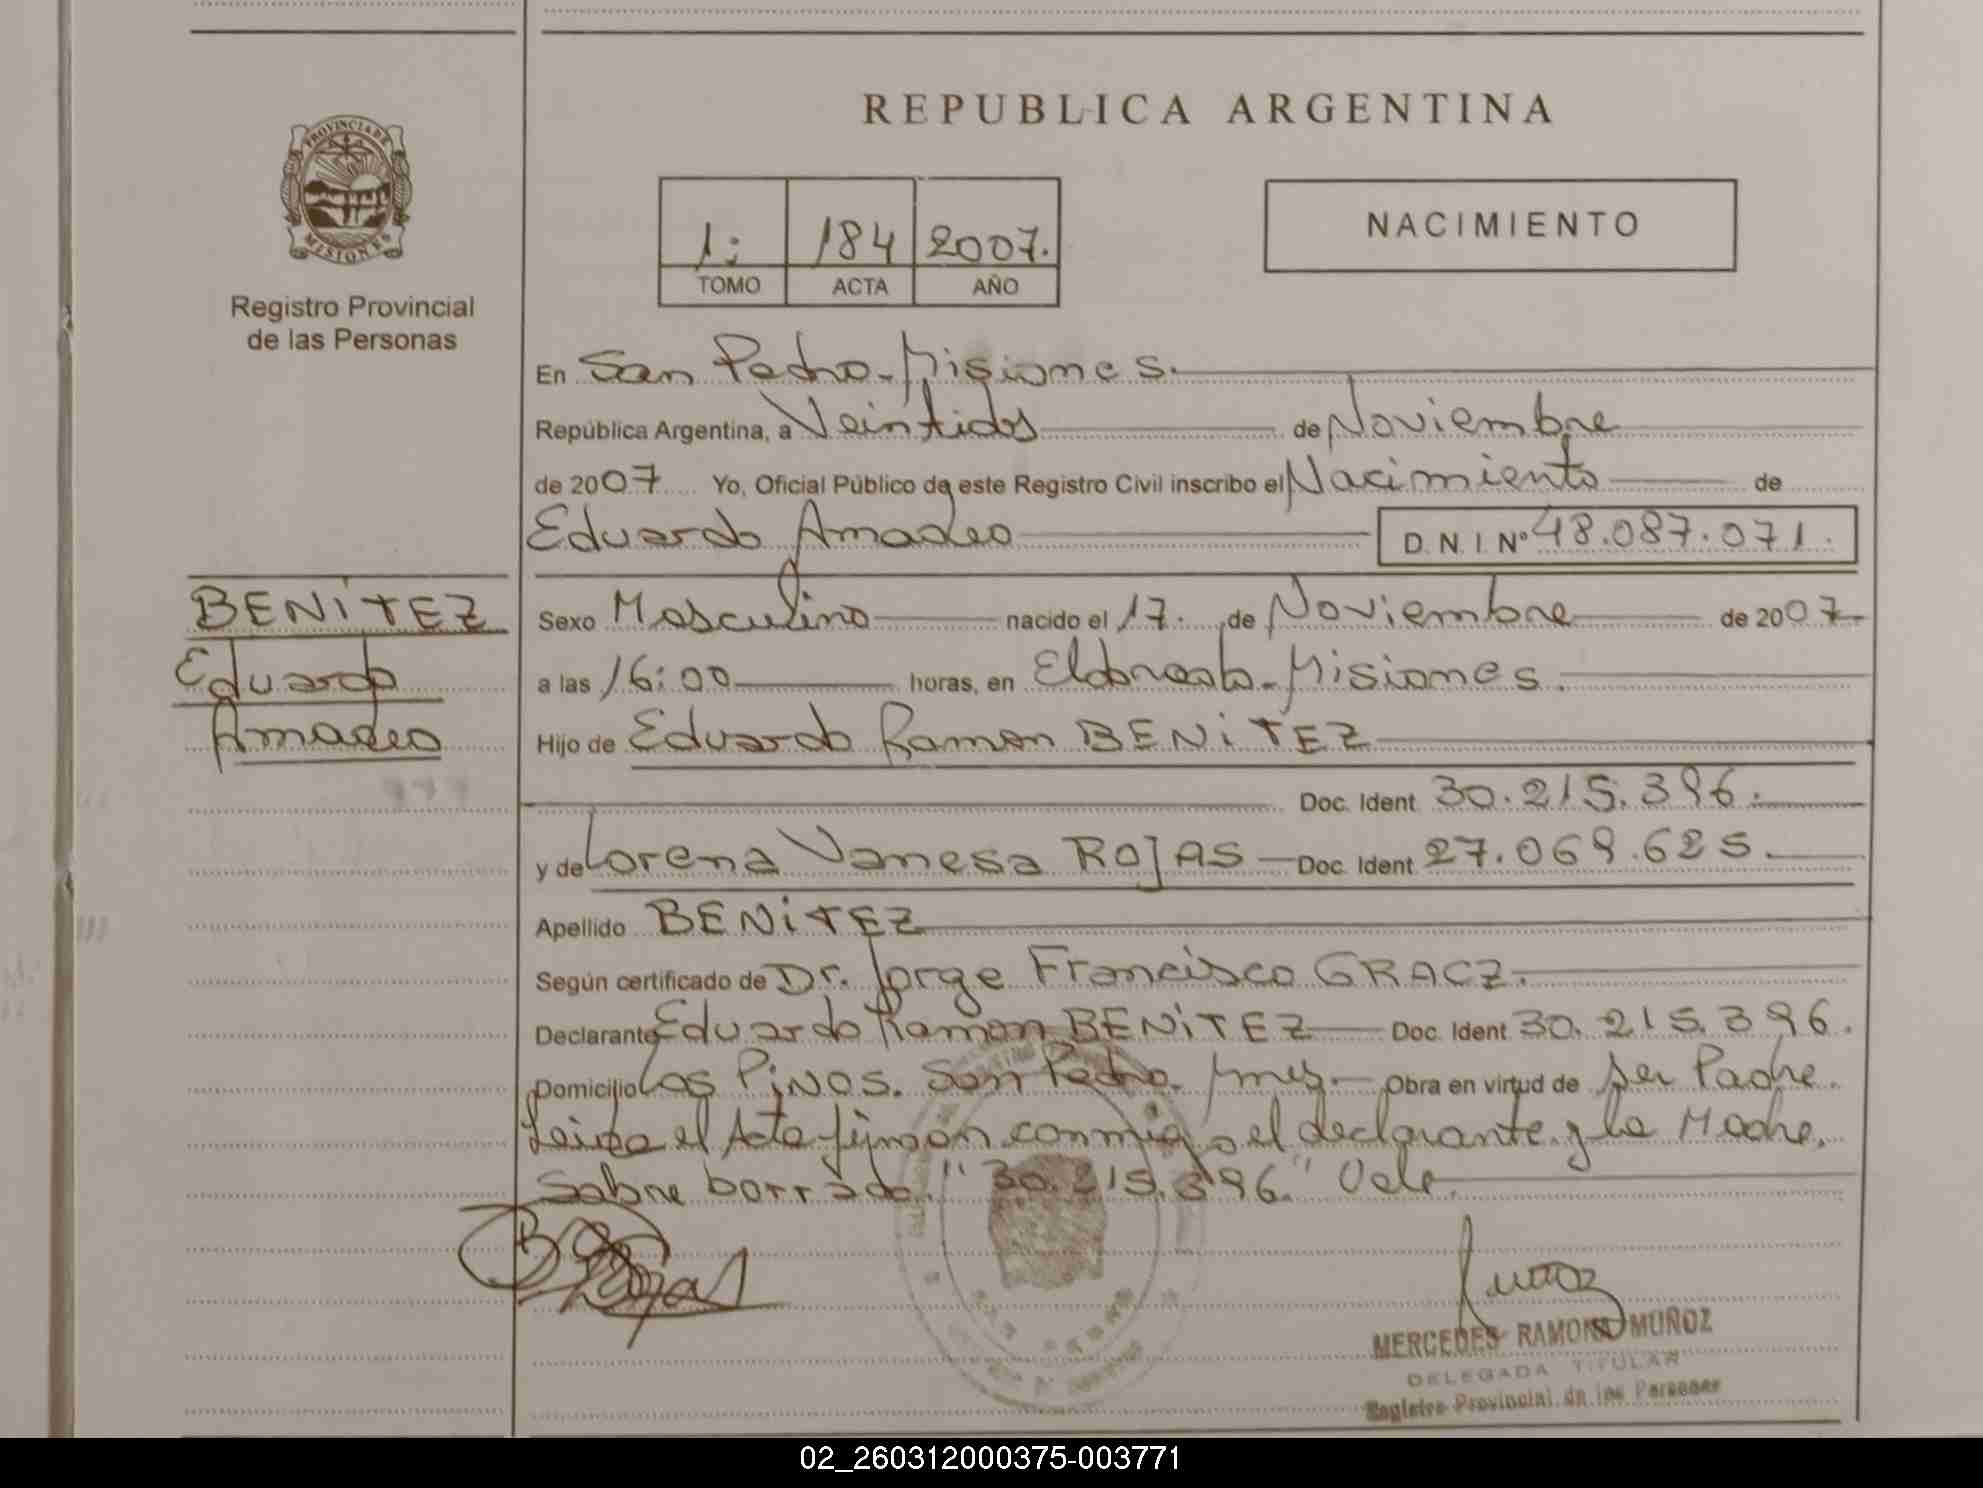 REPUBLICA ARGENTINA
PROVINCIA DE
MISIONES
Registro Provincial
de las Personas
1: 184 2007.
TOMO ACTA AÑO
NACIMIENTO
En San Pedro-Misiones.
República Argentina, a Veintidos de Noviembre
de 2007 Yo, Oficial Público de este Registro Civil inscribo el Nacimiento de
Eduardo Amadeo D.N.I. Nº 48.087.071.
BENITEZ
Eduardo
Amadeo
Sexo Masculino nacido el 17. de Noviembre de 2007
a las 16:00 horas, en Eldorado-Misiones.
Hijo de Eduardo Ramon BENITEZ
Doc. Ident 30.215.396.
y de Lorena Vanesa ROJAS Doc. Ident 27.069.625.
Apellido BENITEZ
Según certificado de Dr. Jorge Francisco GRACZ.
Declarante Eduardo Ramon BENITEZ Doc. Ident 30.215.396.
Domicilio Los Pinos. San Pedro. Mnes. Obra en virtud de ser Padre.
Leida el Acta firman conmigo el declarante y la Madre.
Sobre borrado. "30.215.396." Vale.
MERCEDES RAMONA MUÑOZ
DELEGADA TITULAR
Registro Provincial de las Personas
02_260312000375-003771